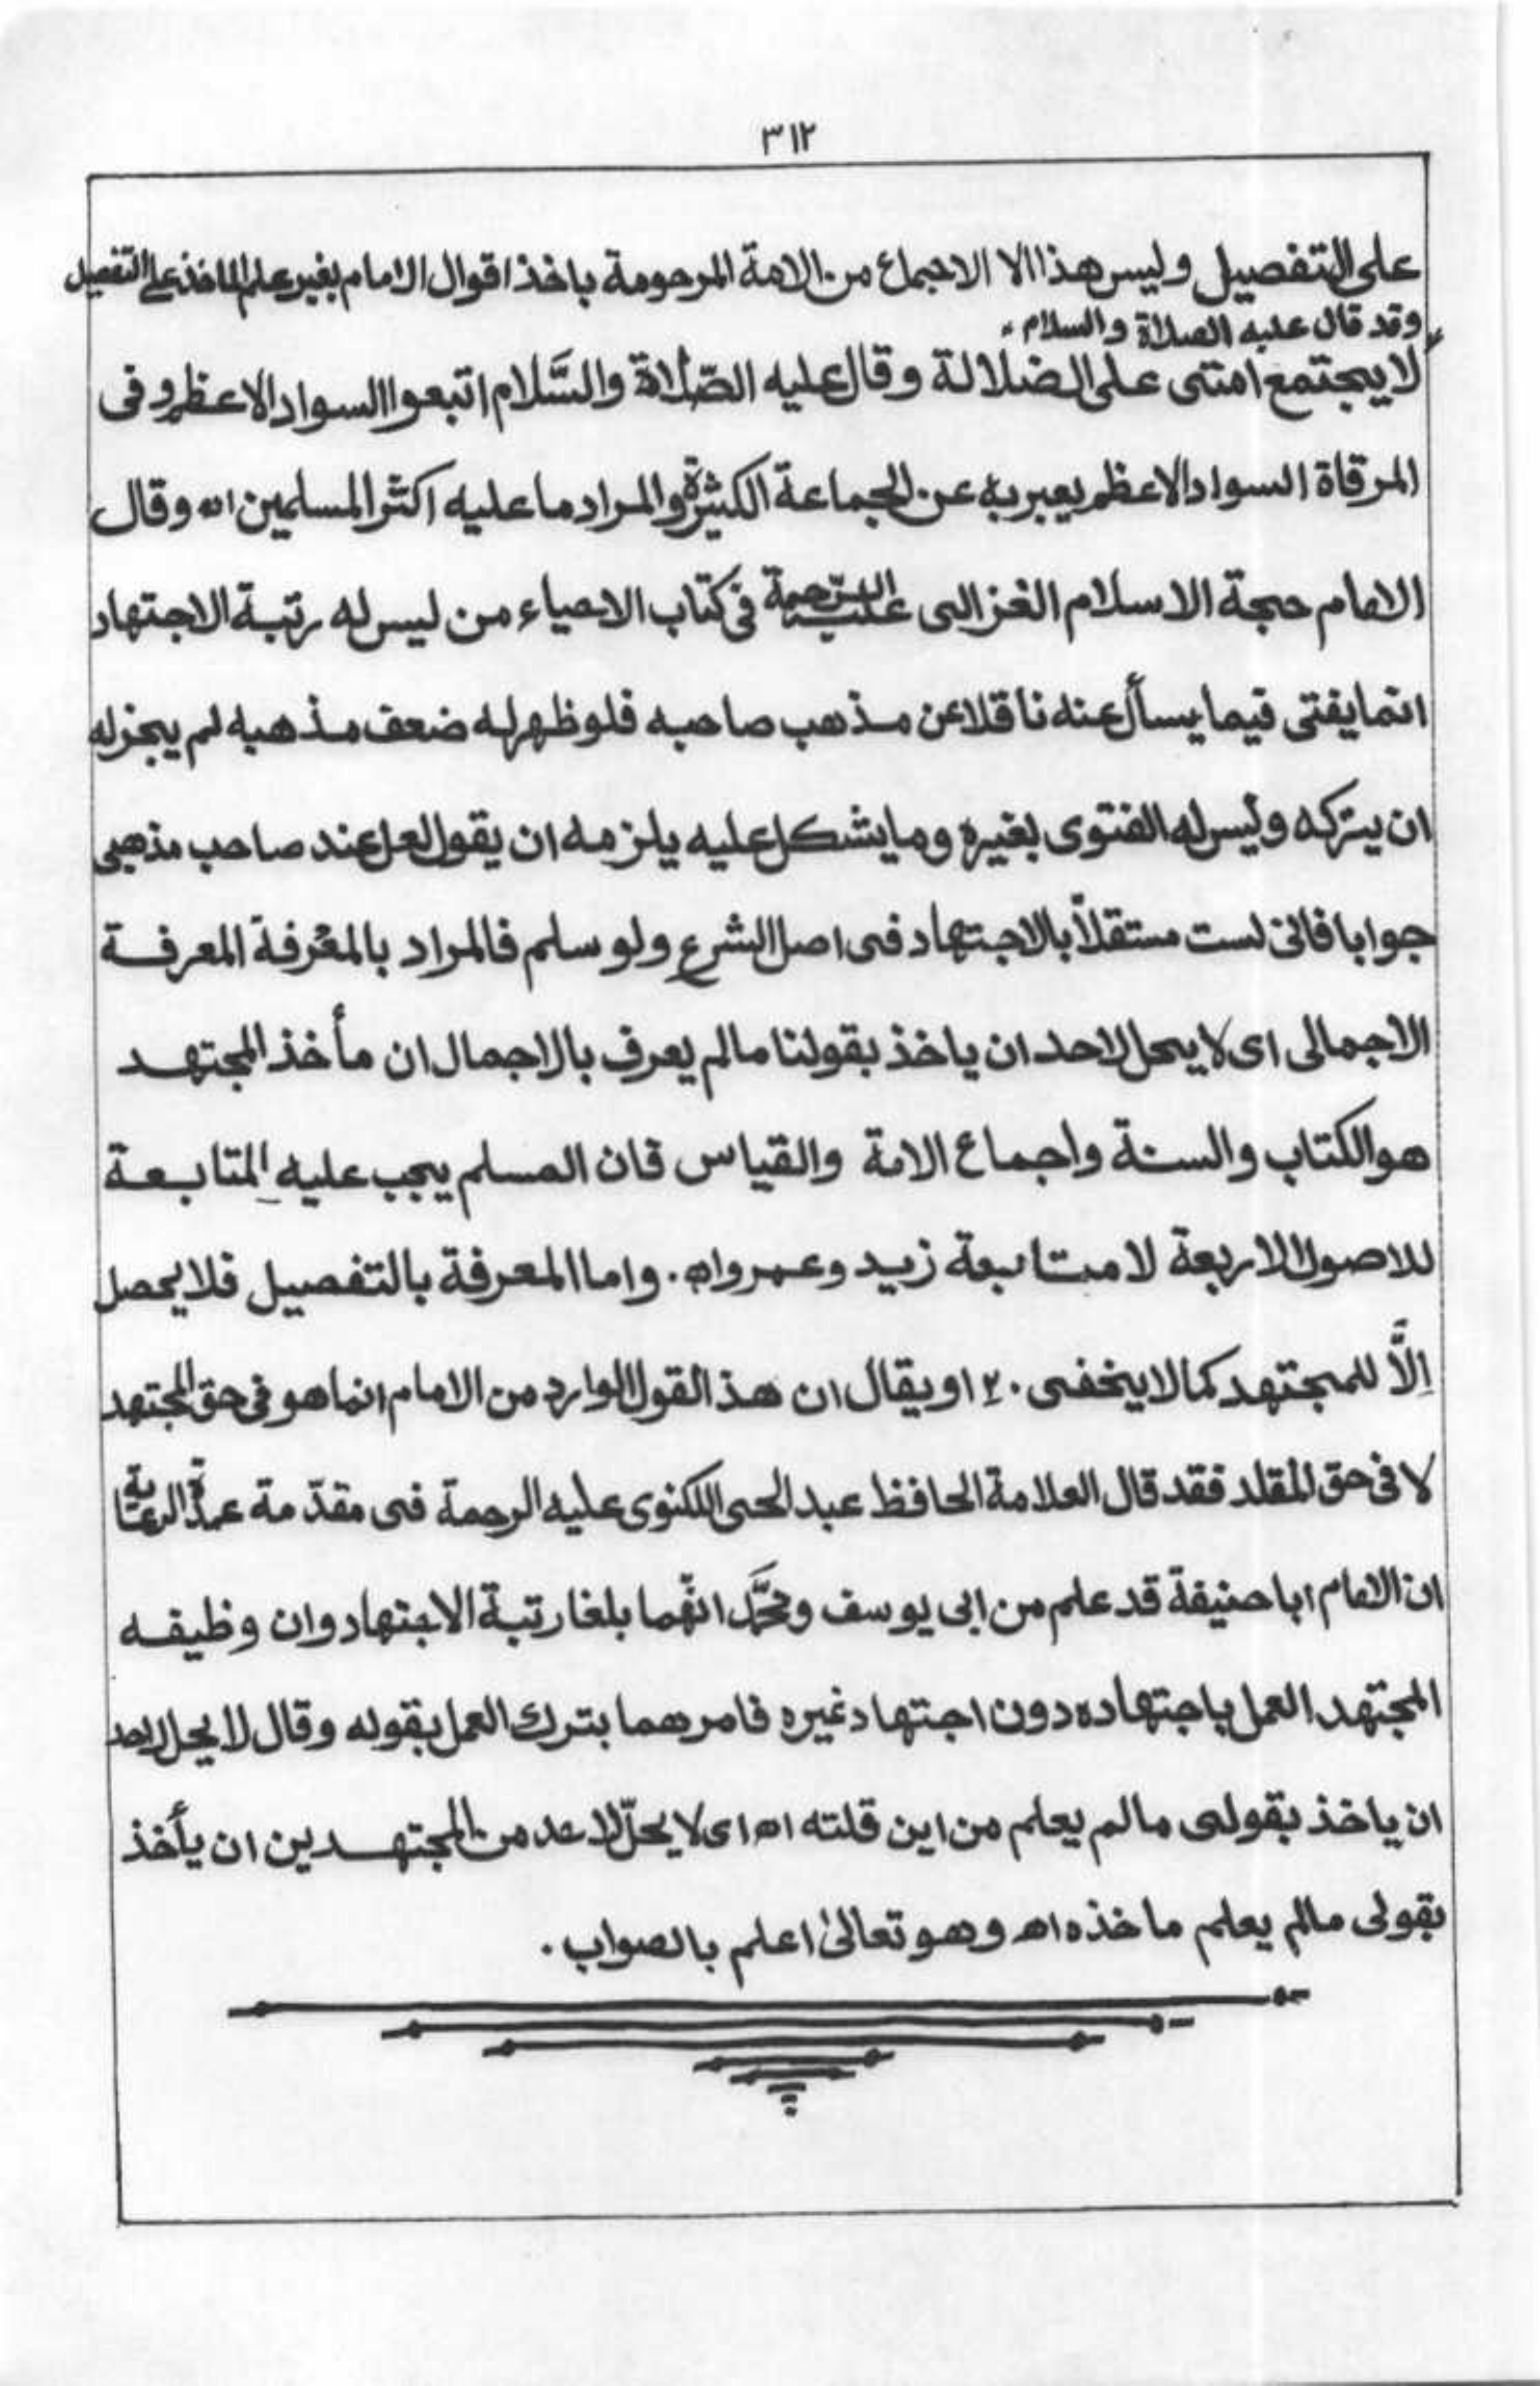 ٣١٢
على التفصيل وليس هذا الا الاجماع من الامة المرحومة باخذ اقوال الامام بغير علم الماخذ على التفصيل
وقد قال عليه الصلاة والسلام
لا يجتمع امتى على الضلالة وقال عليه الصّلاة والسَّلام اتبعوا السواد الاعظم وفى
المرقاة السواد الاعظم يعبر به عن الجماعة الكثيرة والمراد ما عليه اكثر المسلمين اه وقال
الامام حجة الاسلام الغزالى عليه الرّحمة فى كتاب الاحياء من ليس له رتبة الاجتهاد
انما يفتى فيما يسأل عنه ناقلا عن مذهب صاحبه فلو ظهر له ضعف مذهبه لم يجز له
ان يتركه وليس له الفتوى بغيره وما يشكل عليه يلزمه ان يقول لعل عند صاحب مذهبى
جوابا فانى لست مستقلاً بالاجتهاد فى اصل الشرع ولو سلم فالمراد بالمعرفة المعرفة
الاجمالى اى لا يحل لاحد ان ياخذ بقولنا مالم يعرف بالاجمال ان مأخذ المجتهد
هو الكتاب والسنة واجماع الامة والقياس فان المسلم يجب عليه المتابعة
للاصول الاربعة لا متابعة زيد وعمرو اه. واما المعرفة بالتفصيل فلا يحصل
اِلاَّ للمجتهد كما لا يخفى . ٢ او يقال ان هذ القول الوارد من الامام انما هو فى حق المجتهد
لا فى حق المقلد فقد قال العلامة الحافظ عبد الحى اللكنوى عليه الرحمة فى مقدّمة عمدة الرعاية
ان الامام ابا حنيفة قد علم من ابى يوسف ومحمَّد انّهما بلغا رتبة الاجتهاد وان وظيفه
المجتهد العمل باجتهاده دون اجتهاد غيره فامرهما بترك العمل بقوله وقال لا يحل لاحد
ان ياخذ بقولى مالم يعلم من اين قلته اه اى لا يحلّ لاحد من المجتهدين ان يأخذ
بقولى مالم يعلم ماخذه اه وهو تعالىٰ اعلم بالصواب .